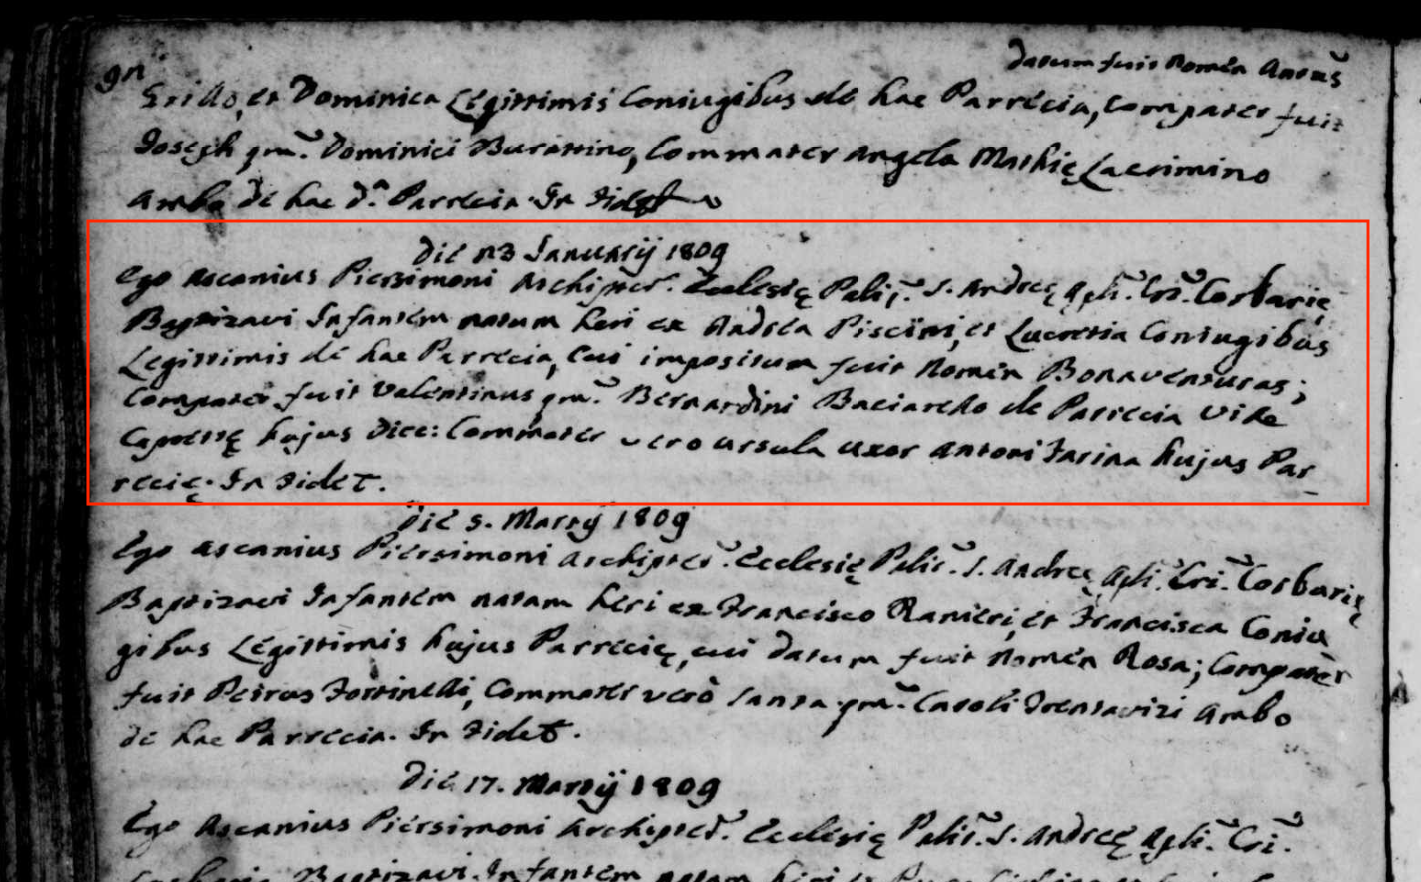 datum fuit Nomen Antus
Grillo, et Dominica Legittimis Coniugibus de hac Parrecia, Compater fuit
Joseph qm̃. Dominici Burattino, Commater Angela Mathię Lacrimino
Ambo de hac d.ᵃ Parrecia. In Fidem
Die 23 Januarij 1809
Ego Ascanius Piersimoni Archipter̃. Ecclesię Pleb̃. S. Andreę Apli.̃ Cri.̃ Corbarię
Baptizavi Infantem natum heri ex Andrea Piscini, et Lucretia Coniugibus
Legittimis de hac Parrecia, Cui impositum fuit Nomen Bonaventuras;
Compater fuit Valentinus qm̃. Bernardini Baciarello de Parrecia Villę
Caprettę hujus Dice: Commater vero Ursula uxor Antoni Farina hujus Par
recię. In Fidet.
Die 5. Martij 1809
Ego Ascanius Piersimoni Archipter̃. Ecclesię Pleb̃. S. Andreę Apli.̃ Cri.̃ Corbarię
Baptizavi Infantem natam heri ex Francisco Ranieri, et Francisca Coniu
gibus Legittimis hujus Parrecię, cui datum fuit Nomen Rosa; Compater
fuit Petrus Fortinelli, Commater verò Santa qm̃. Caroli Trentavizi Ambo
de hac Parrecia. In Fidet.
Die 17. Martij 1809
Ego Ascanius Piersimoni Archipter̃. Ecclesię Pleb̃. S. Andreę Apli.̃ Cri.̃
Baptizavi Infantem natam heri